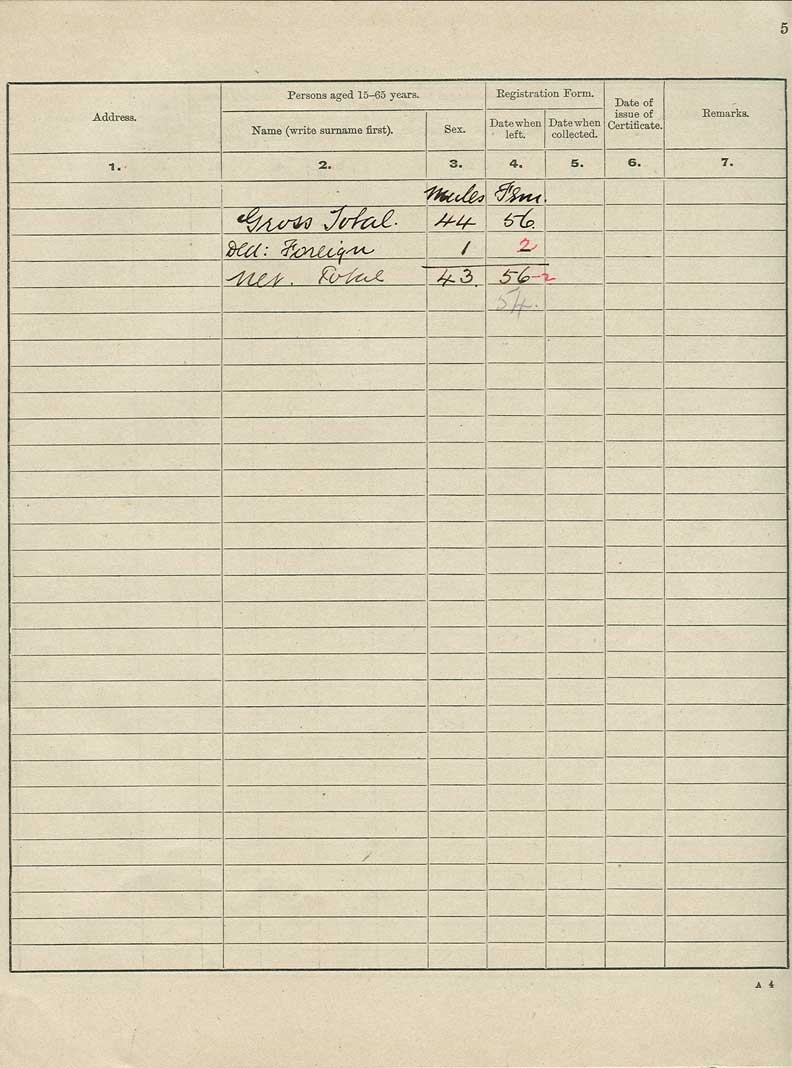 5
Persons aged 15–65 years. Registration Form.
Address. Name (write surname first). Sex. Date when left. Date when collected. Date of issue of Certificate. Remarks.
1. 2. 3. 4. 5. 6. 7.
Males Fem.
Gross Total. 44 56.
Ded: Foreign 1 2
Net. Total 43. 56-2
54.
A 4